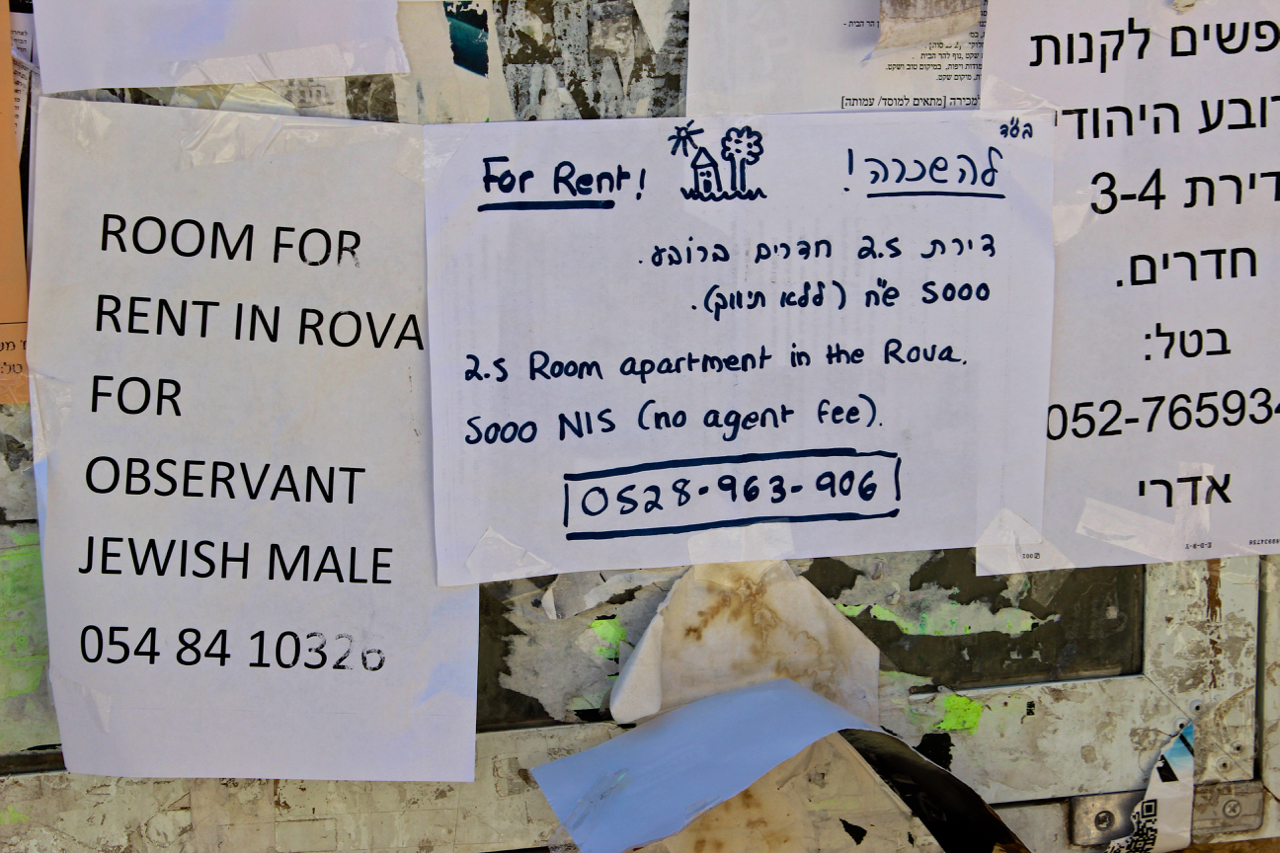 ROOM FOR
RENT IN ROVA
FOR
OBSERVANT
JEWISH MALE
054 84 10326
בס״ד
For Rent!
להשכרה!
דירת 2.5 חדרים ברובע.
5000 ש״ח (ללא תיווך).
2.5 Room apartment in the Rova.
5000 NIS (no agent fee).
0528-963-906
פשים לקנות
רובע היהודי
דירת 3-4
חדרים.
בטל:
052-765934
אדרי
למכירה [מתאים למוסד/ עמותה]